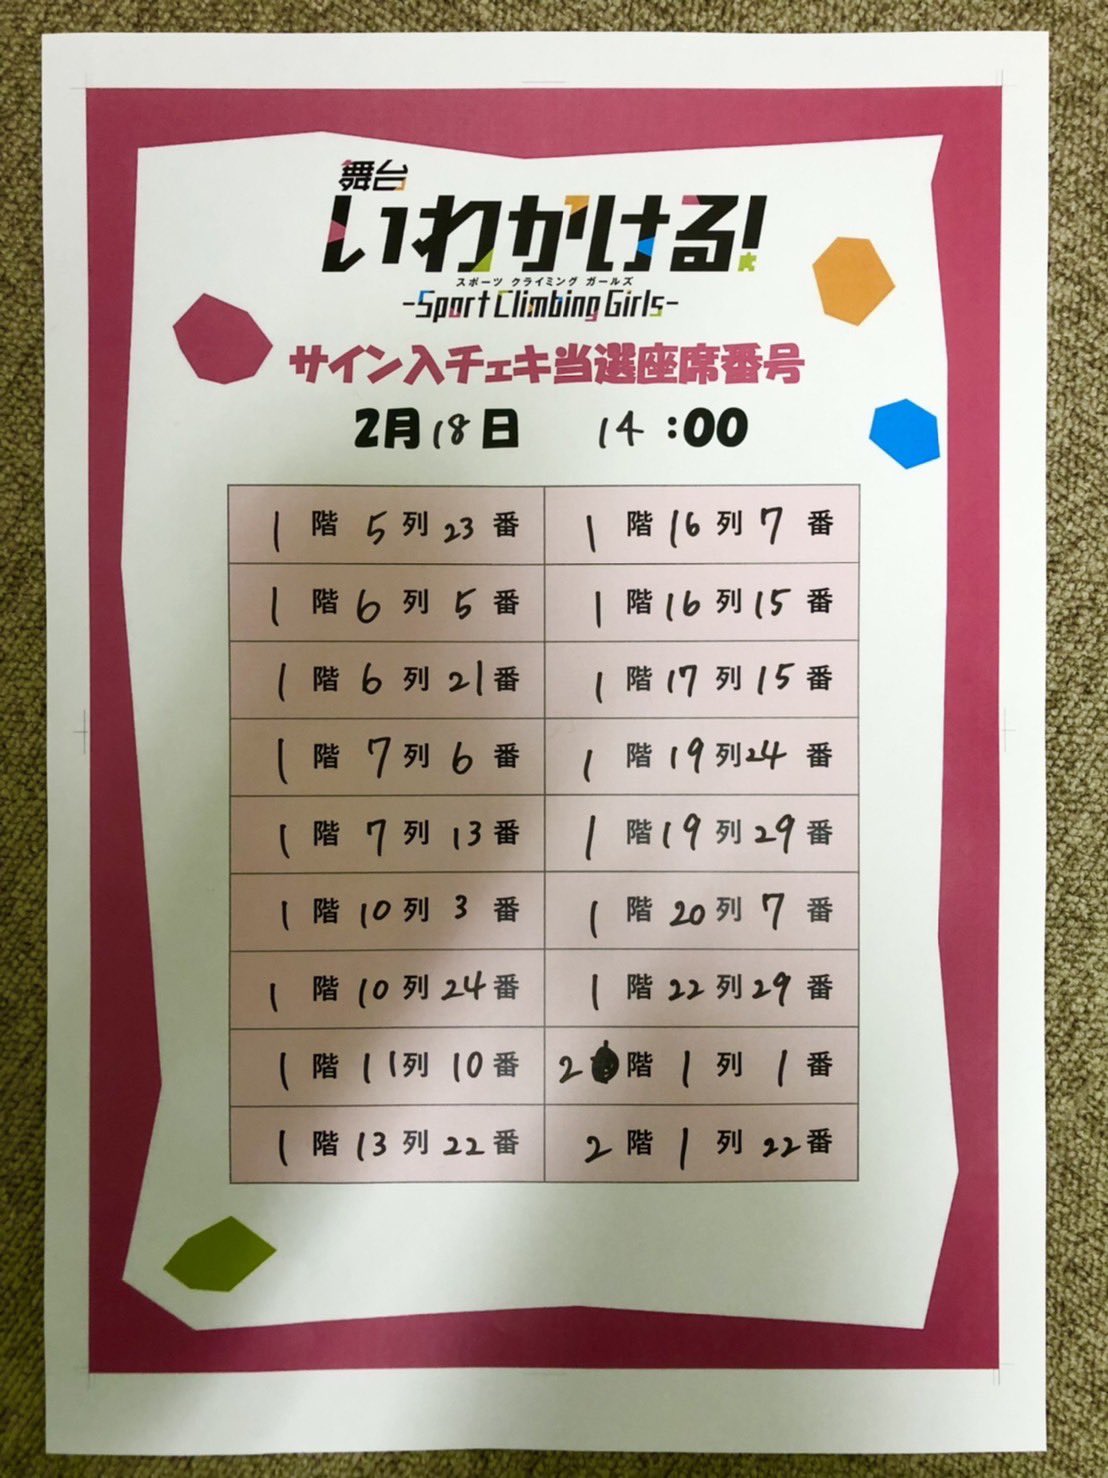 舞台
いわかける!
スポーツ クライミング ガールズ
-Sport Climbing Girls-
サイン入チェキ当選座席番号
2月18日 14:00
1階5列23番 1階16列7番
1階6列5番 1階16列15番
1階6列21番 1階17列15番
1階7列6番 1階19列24番
1階7列13番 1階19列29番
1階10列3番 1階20列7番
1階10列24番 1階22列29番
1階11列10番 2階1列1番
1階13列22番 2階1列22番